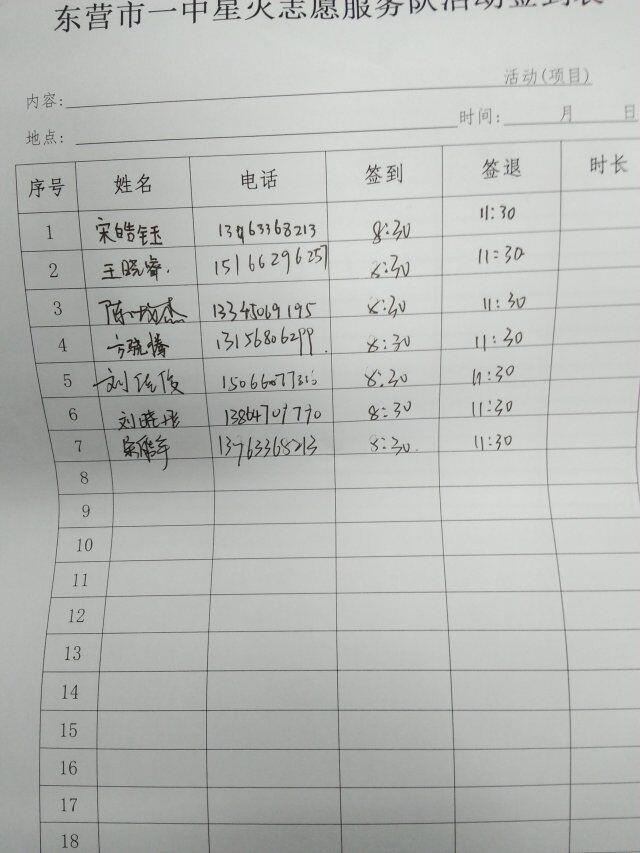 东营市一中星火志愿服务队活动签到表
内容: 活动(项目)
地点: 时间: 月 日
序号 姓名 电话 签到 签退 时长
1 宋皓钰 13963368213 8:30 11:30
2 王晓睿 15166296257 8:30 11:30
3 陈 杰 13345069195 8:30 11:30
4 方晓 13156806299 8:30 11:30
5 刘佳俊 8:30 11:30
6 刘晓彤 13864707770 8:30 11:30
7 13963368213 8:30 11:30
8
9
10
11
12
13
14
15
16
17
18